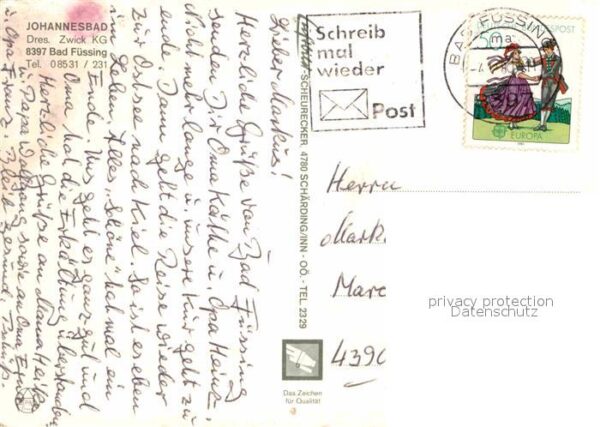 JOHANNESBAD
Dres. Zwick KG
8397 Bad Füssing
Tel. 08531 / 231
Lieber Markus!
Herzliche Grüße von Bad Füssing
senden Dir Oma Käthe u. Opa Heinz.
Nicht mehr lange u. unsere Kur geht zu
ende. Dann geht die Reise wieder
zur Ostsee nach Kiel. So ist es eben
im Leben, alles "Schöne" hat mal ein
Ende. Uns geht es ganz gut und
Oma hat die Erkältung überstanden
Herzliche Grüße an Mama Heike
u. Papa Wolfgang sowie an Oma
u. Opa Franz. Bleib gesund. Tschüß.
Luftbild SCHEURECKER, 4780 SCHÄRDING/INN - OÖ - TEL. 2329
Das Zeichen
für Qualität
Schreib
mal
wieder
Post
BAD FÜSSING
ma
8397
50
BUNDESPOST
EUROPA
Herrn
Mark
Marc
4390
privacy protection
Datenschutz